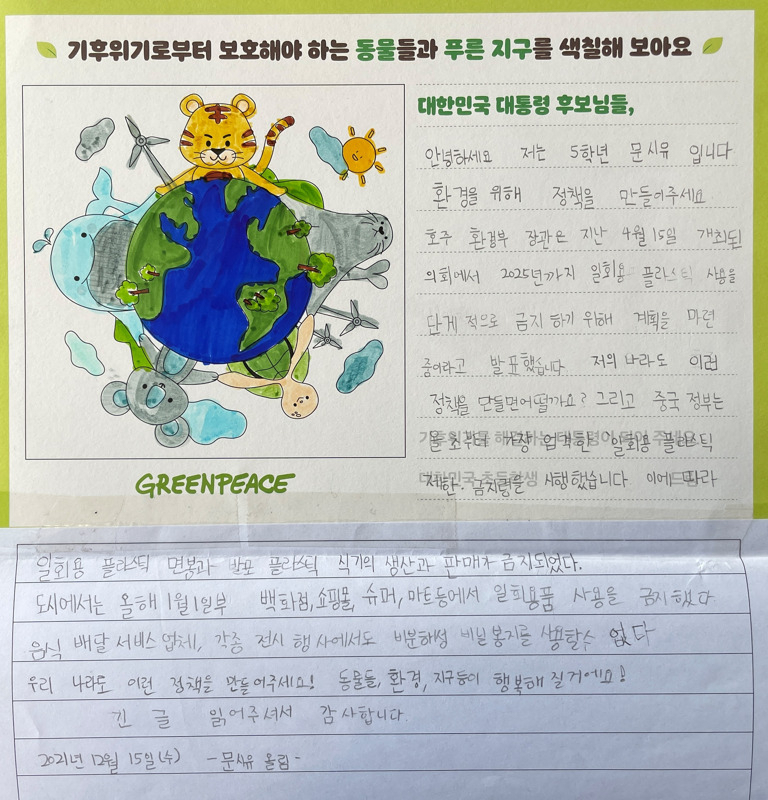 기후위기로부터 보호해야 하는 동물들과 푸른 지구를 색칠해 보아요
대한민국 대통령 후보님들,
안녕하세요 저는 5학년 문시유 입니다
환경을 위해 정책을 만들어주세요
호주 환경부 장관은 지난 4월 15일 개최된
의회에서 2025년까지 일회용 플라스틱 사용을
단계 적으로 금지 하기 위해 계획을 마련
중이라고 발표했습니다 저희 나라도 이런
정책을 만들면어떨까요? 그리고 중국 정부는
올 초부터 가장 엄격한 일회용 플라스틱
제한·금지령을 시행했습니다 이에 따라
기후위기를 해결하는 대통령이 되어 주세요
대한민국 초등학생 드림
GREENPEACE
일회용 플라스틱 면봉과 발포 플라스틱 식기의 생산과 판매가 금지되었다.
도시에서는 올해 1월1일부 백화점,쇼핑몰, 슈퍼,마트등에서 일회용품 사용을 금지했다
음식 배달 서비스 업체, 각종 전시 행사에서도 비분해성 비닐봉지를 사용할수 없다
우리 나라도 이런 정책을 만들어주세요! 동물들, 환경, 지구등이 행복해 질거에요!
긴 글 읽어주셔서 감사합니다.
2021년 12월 15일(수) -문시유 올림-